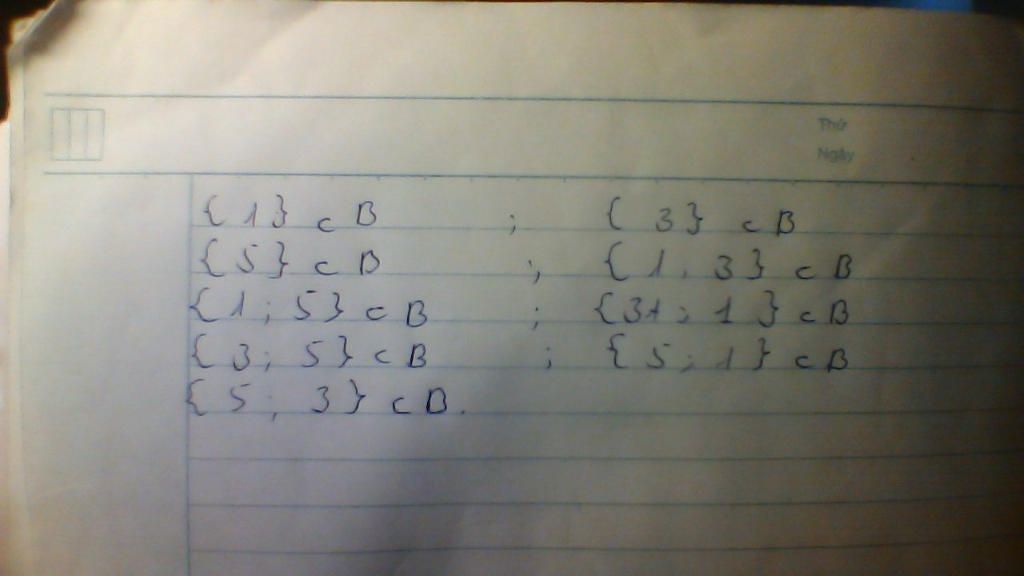 Thứ
Ngày
{ 1 } ⊂ B ; { 3 } ⊂ B
{ 5 } ⊂ B ; { 1 ; 3 } ⊂ B
{ 1 ; 5 } ⊂ B ; { 31 ; 1 } ⊂ B
{ 3 ; 5 } ⊂ B ; { 5 ; 1 } ⊂ B
{ 5 ; 3 } ⊂ B.